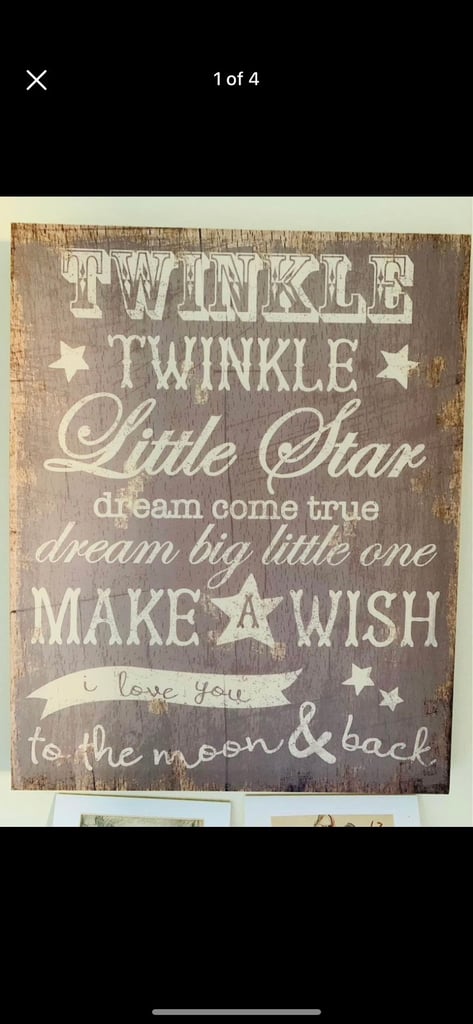 1 of 4
TWINKLE
TWINKLE
Little Star
dream come true
dream big little one
MAKE A WISH
i love you
to the moon & back.